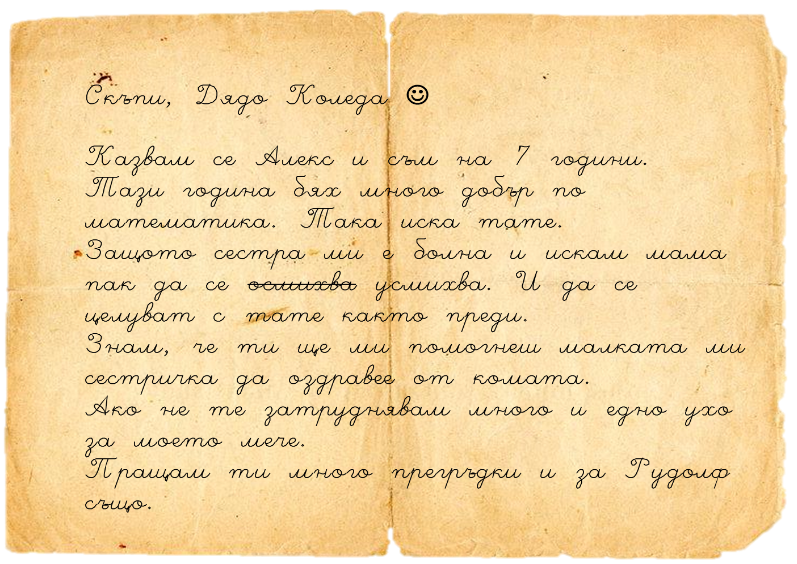 Скъпи, Дядо Коледа ☺
Казвам се Алекс и съм на 7 години.
Тази година бях много добър по
математика. Така иска тате.
Защото сестра ми е болна и искам мама
пак да се осмихва усмихва. И да се
целуват с тате както преди.
Знам, че ти ще ми помогнеш малката ми
сестричка да оздравее от комата.
Ако не те затруднявам много и едно ухо
за моето мече.
Пращам ти много прегръдки и за Рудолф
също.